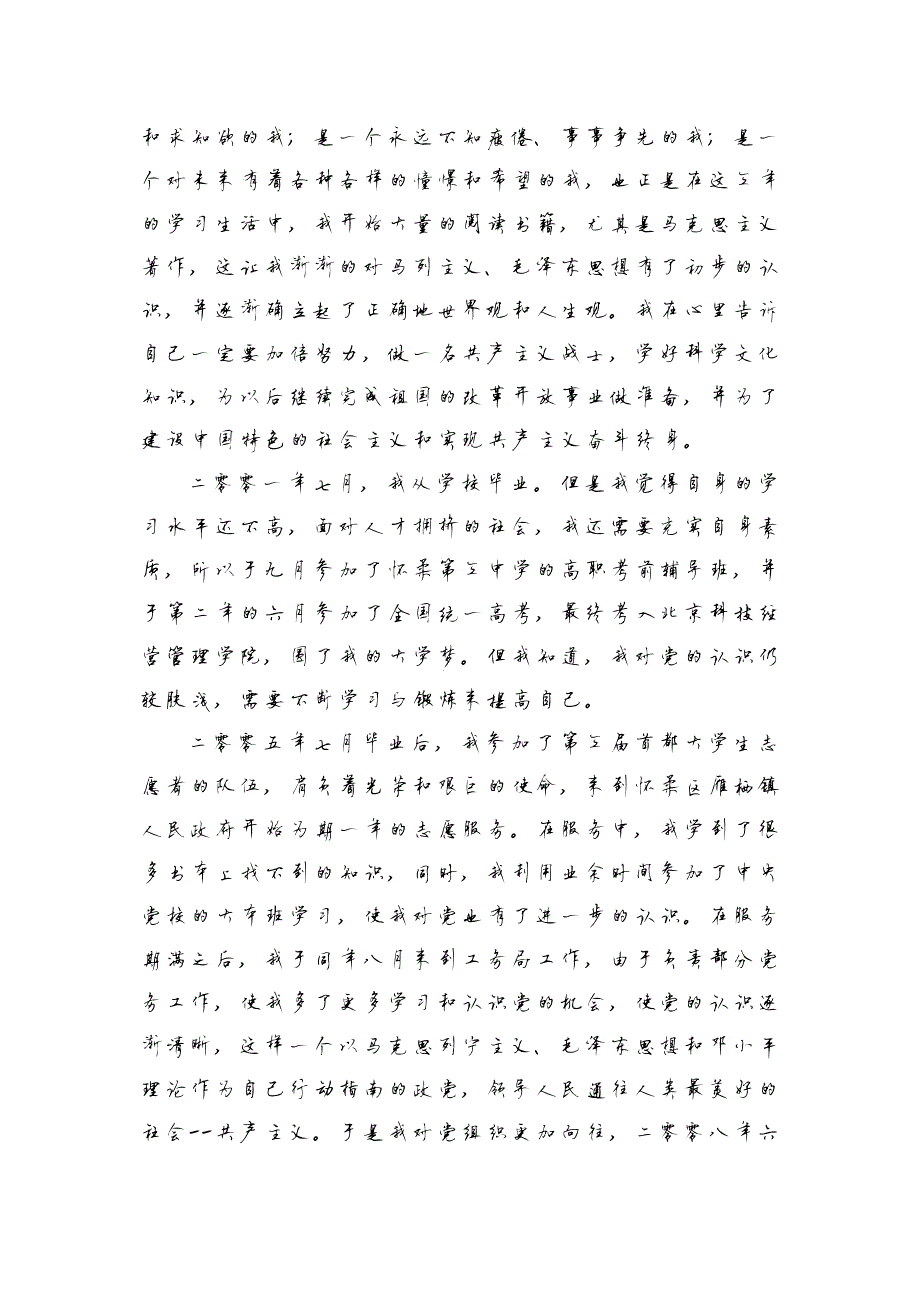 和求知欲的我；是一个永远不知疲倦、事事争先的我；是一
个对未来有着各种各样的憧憬和希望的我，也正是在这三年
的学习生活中，我开始大量的阅读书籍，尤其是马克思主义
著作，这让我渐渐的对马列主义、毛泽东思想有了初步的认
识，并逐渐确立起了正确地世界观和人生观。我在心里告诉
自己一定要加倍努力，做一名共产主义战士，学好科学文化
知识，为以后继续完成祖国的改革开放事业做准备，并为了
建设中国特色的社会主义和实现共产主义奋斗终身。
二零零一年七月，我从学校毕业。但是我觉得自身的学
习水平还不高，面对人才拥挤的社会，我还需要充实自身素
质，所以于九月参加了怀柔第三中学的高职考前辅导班，并
于第二年的六月参加了全国统一高考，最终考入北京科技经
营管理学院，圆了我的大学梦。但我知道，我对党的认识仍
较肤浅，需要不断学习与锻炼来提高自己。
二零零五年七月毕业后，我参加了第三届首都大学生志
愿者的队伍，肩负着光荣和艰巨的使命，来到怀柔区雁栖镇
人民政府开始为期一年的志愿服务。在服务中，我学到了很
多书本上找不到的知识，同时，我利用业余时间参加了中央
党校的大本班学习，使我对党也有了进一步的认识。在服务
期满之后，我于同年八月来到工务局工作，由于负责部分党
务工作，使我多了更多学习和认识党的机会，使党的认识逐
渐清晰，这样一个以马克思列宁主义、毛泽东思想和邓小平
理论作为自己行动指南的政党，领导人民通往人类最美好的
社会--共产主义。于是我对党组织更加向往，二零零八年六